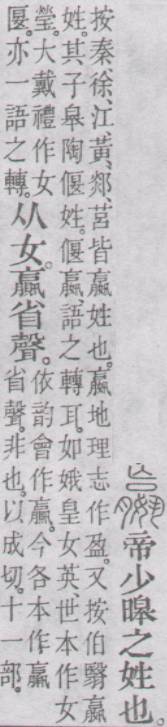 帝少暤之姓也
按秦、徐、江、黃、郯、莒皆嬴姓也。嬴地理志作盈。又按伯翳嬴
姓。其子皋陶偃姓。偃嬴、語之轉耳。如娥皇女英、世本作女
瑩。大戴禮作女
匽。亦一語之轉。
从女。贏省聲。
依韵會作贏。今各本作羸
省聲。非也。以成切。十一部。